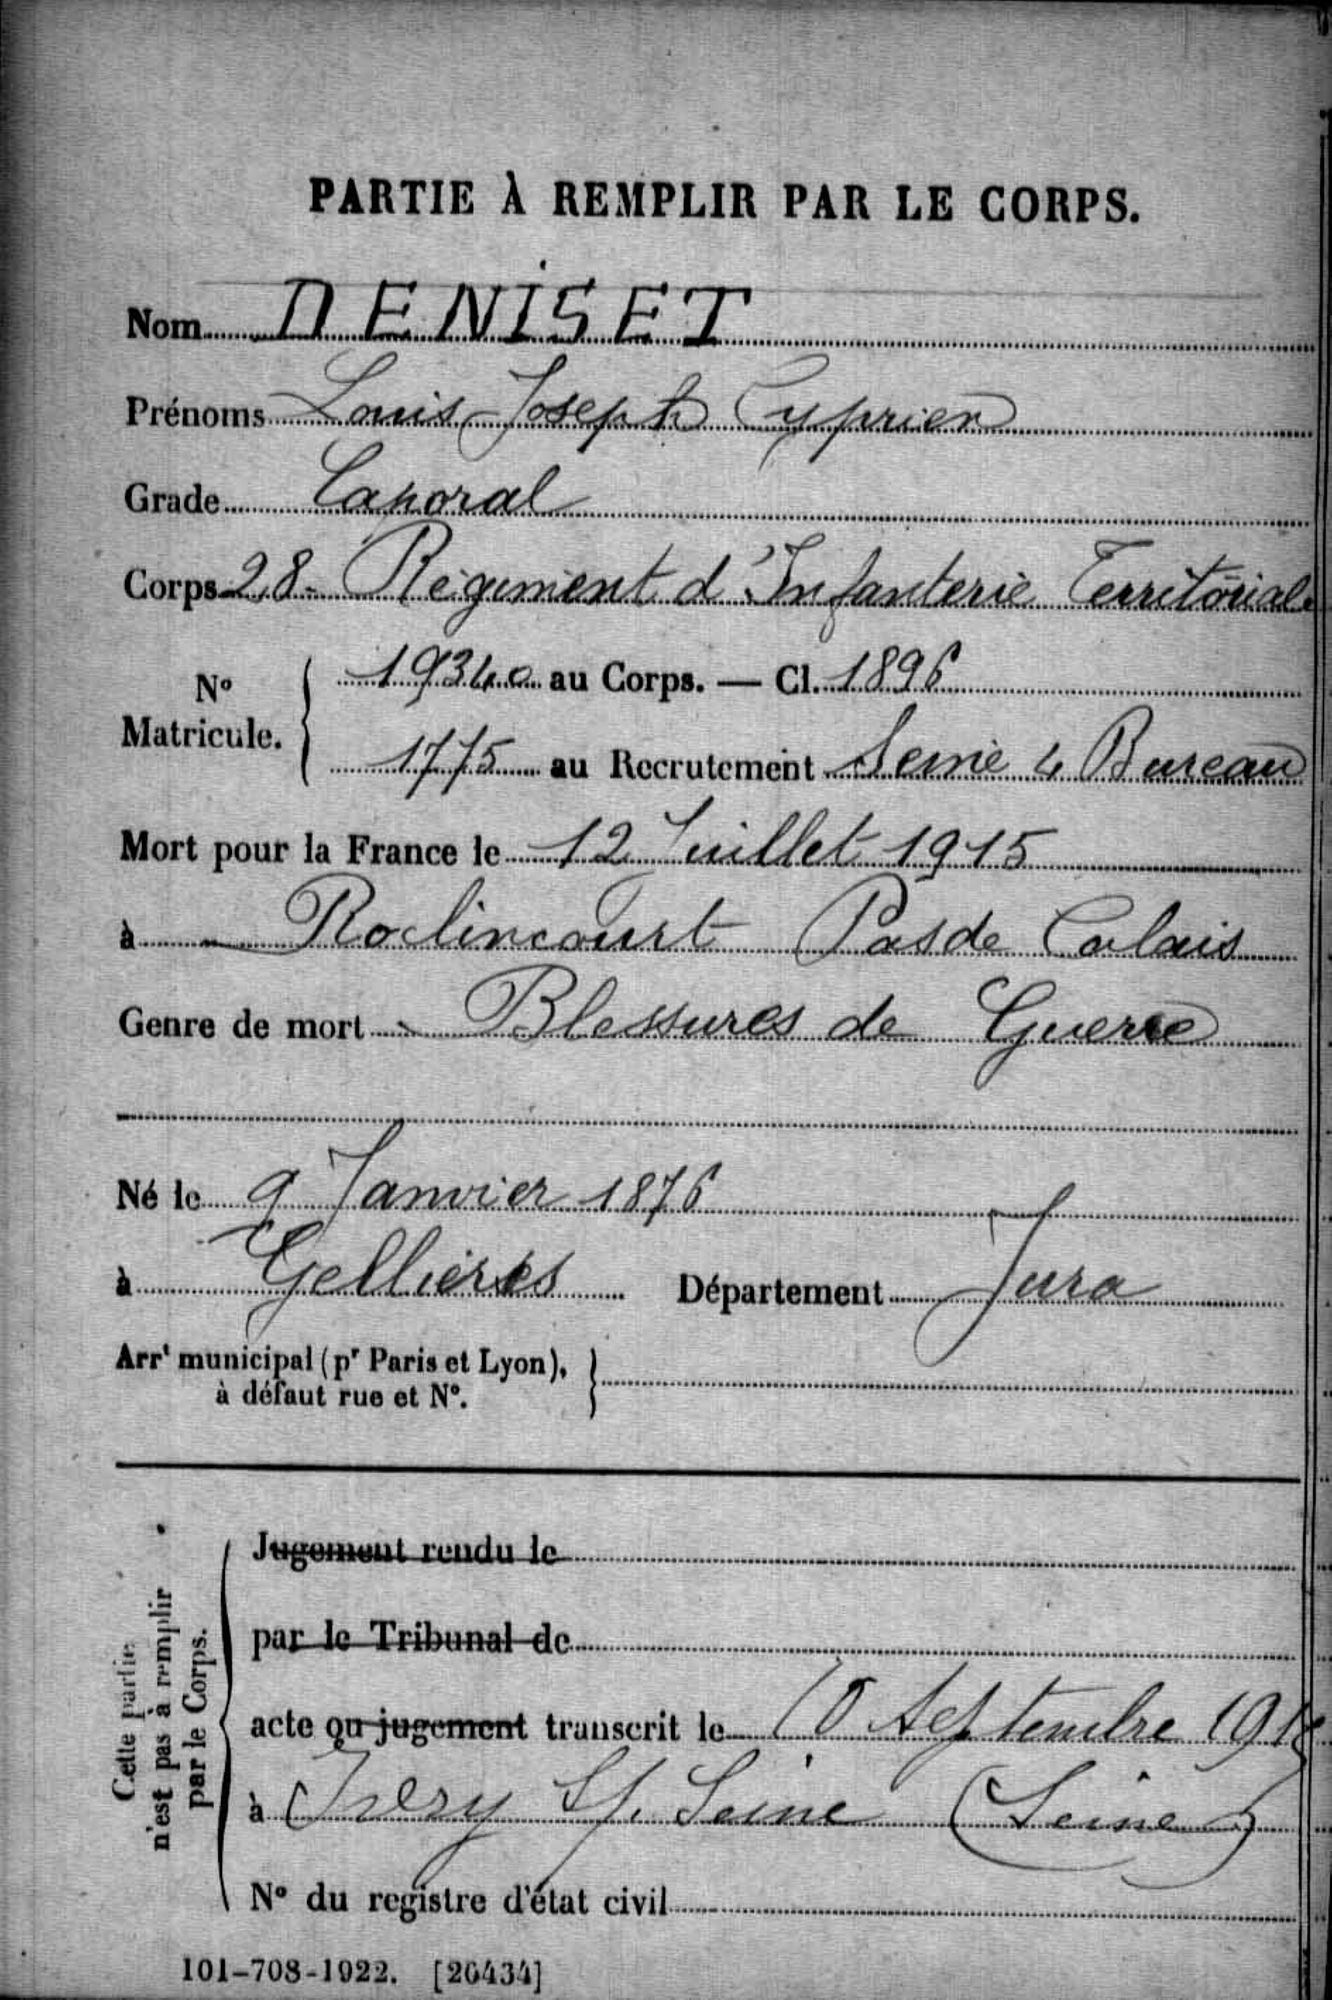 PARTIE À REMPLIR PAR LE CORPS.
Nom DENISET
Prénoms Louis Joseph Cyprien
Grade Caporal
Corps 28e Régiment d'Infanterie Territoriale
No Matricule. 19340 au Corps. — Cl. 1896
1775 au Recrutement Seine 4 Bureau
Mort pour la France le 12 Juillet 1915
à Roclincourt Pas de Calais
Genre de mort Blessures de Guerre
Né le 9 Janvier 1876
à Gellières Département Jura
Arrt municipal (pr Paris et Lyon),
à défaut rue et No.
Cette partie
n'est pas à remplir
par le Corps.
Jugement rendu le
par le Tribunal de
acte ou jugement transcrit le 10 Septembre 1915
à Ivry s/ Seine (Seine)
No du registre d'état civil
101-708-1922. [26434]